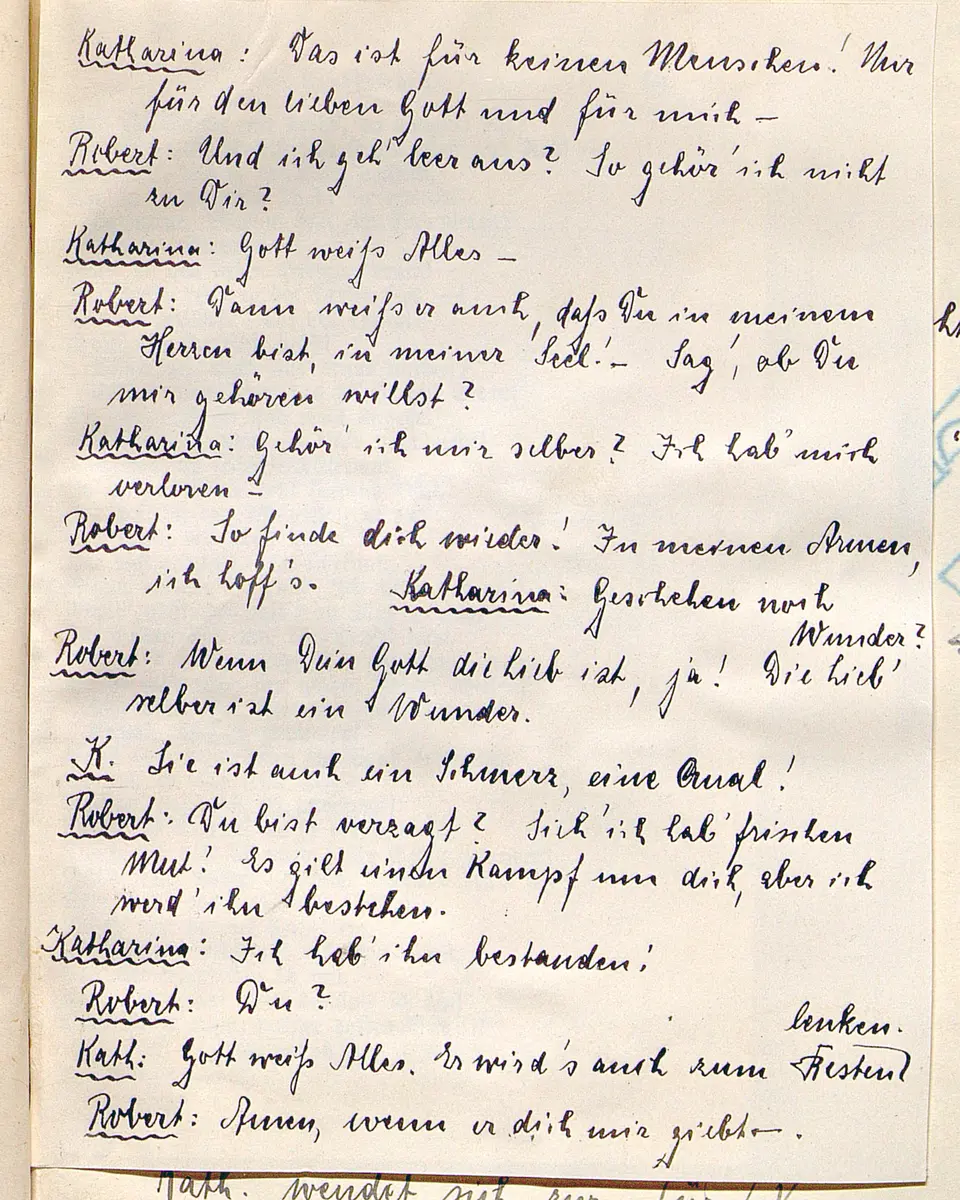 Katharina: Das ist für keinen Menschen! Nur
für den lieben Gott und für mich –
Robert: Und ich geh' leer aus? So gehör' ich nicht
zu Dir?
Katharina: Gott weiß Alles –
Robert: Dann weiß er auch, daß Du in meinem
Herzen bist, in meiner Seel'! – Sag', ob Du
mir gehören willst?
Katharina: Gehör' ich mir selber? Ich hab' mich
verloren –
Robert: So finde dich wieder! In meinen Armen,
ich hoff's.
Katharina: Geschehen noch
Wunder?
Robert: Wenn Dein Gott die Lieb ist, ja! Die Lieb'
selber ist ein Wunder.
K. Sie ist auch ein Schmerz, eine Qual!
Robert: Du bist verzagt? Sieh' ich hab' frischen
Mut! Es gilt einen Kampf um dich, aber ich
werd' ihn bestehen.
Katharina: Ich hab' ihn bestanden!
Robert: Du?
lenken.
Kath: Gott weiß Alles. Er wird's auch zum Besten
Robert: Amen, wenn er dich mir giebt –.
Kath. wendet sich zur